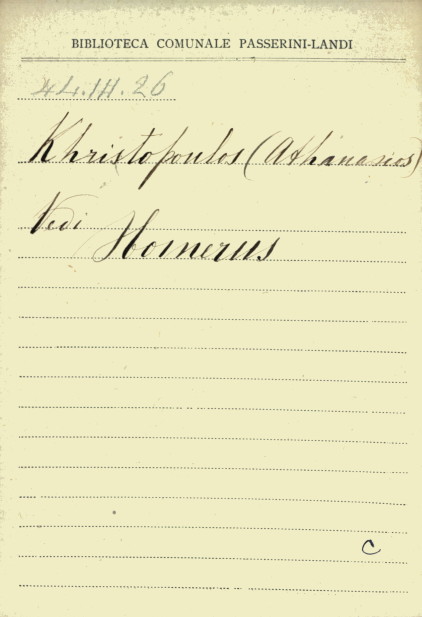 BIBLIOTECA COMUNALE PASSERINI-LANDI
44.IH.26
Khristopoulos (Athanasios)
Vedi
Homerus
C